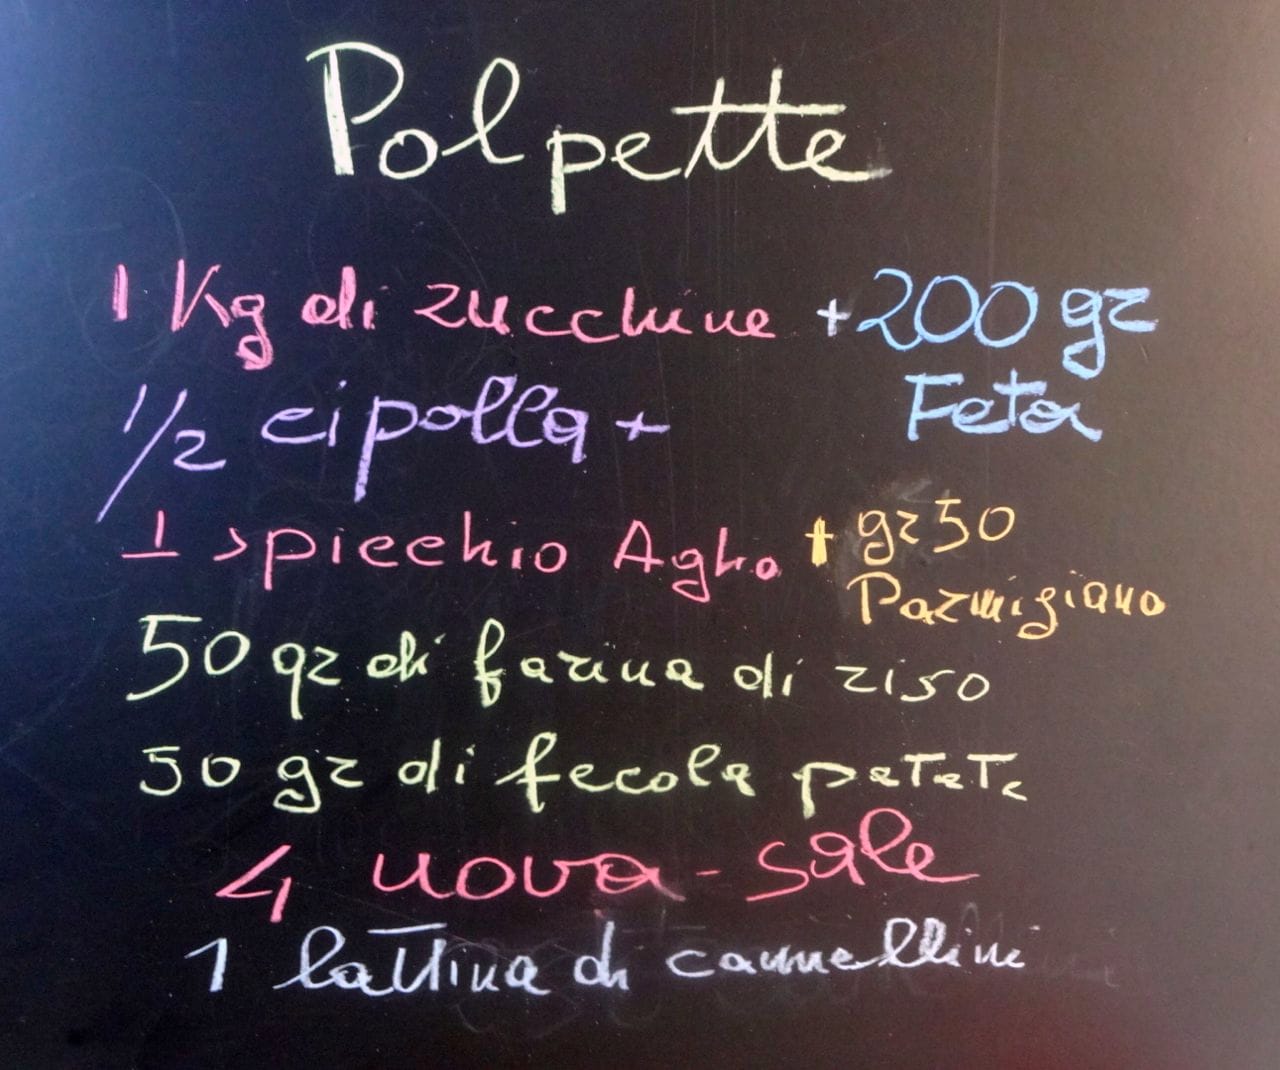 Polpette
1 Kg di zucchine + 200 gr
Feta
1/2 cipolla +
1 spicchio Aglio + gr 50
Parmigiano
50 gr di farina di riso
50 gr di fecola patate
4 uova - sale
1 lattina di cannellini